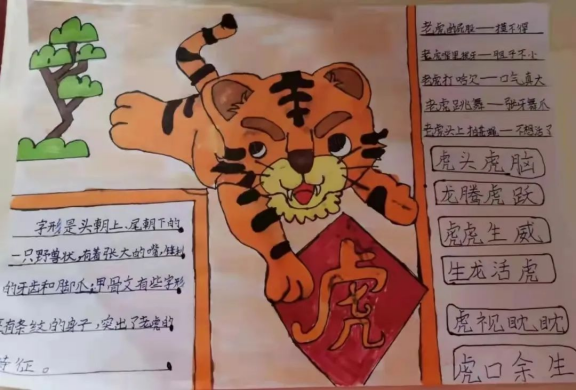 老虎的屁股——摸不得
老虎嘴里拔牙——胆子不小
老虎打哈欠——口气真大
老虎跳舞——张牙舞爪
老虎头上拍苍蝇——不想活了
虎头虎脑
龙腾虎跃
虎虎生威
生龙活虎
虎视眈眈
虎口余生
字形是头朝上、尾朝下的
一只野兽状,有着张大的嘴,锋利
的牙齿和脚爪,甲骨文有些字形
有条纹的身子,突出了老虎的
特征。
虎